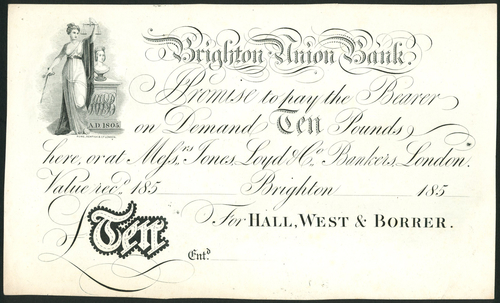 Brighton Union Bank
I Promise to pay the Bearer
on Demand Ten Pounds
here, or at Messrs. Jones, Loyd & Co. Bankers, London.
Value recd. 185 Brighton 185
£ Ten For HALL, WEST & BORRER.
Entd.
A.D. 1805